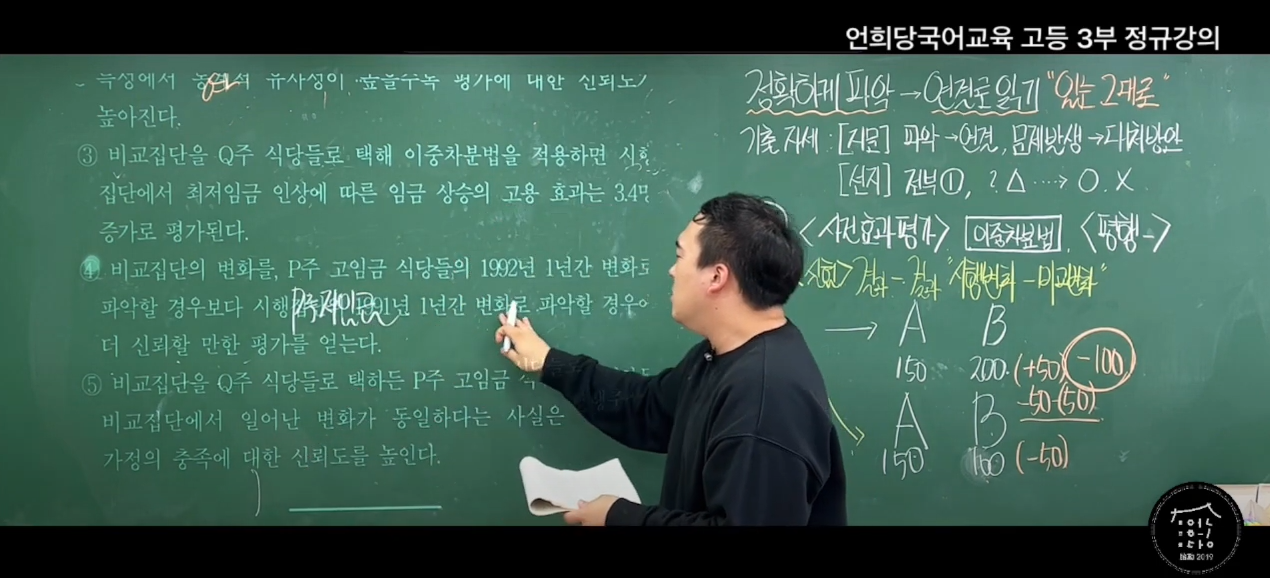 언희당국어교육 고등 3부 정규강의
특성에서 유사성이 높을수록 평가에 대한 신뢰도가
높아진다.
③ 비교집단을 Q주 식당들로 택해 이중차분법을 적용하면 시험
집단에서 최저임금 인상에 따른 임금 상승의 고용 효과는 3.4명
증가로 평가된다.
④ 비교집단의 변화를, P주 고임금 식당들의 1992년 1년간 변화로
파악할 경우보다 시행 1991년 1년간 변화로 파악할 경우에
더 신뢰할 만한 평가를 얻는다.
P주저임금
⑤ 비교집단을 Q주 식당들로 택하든 P주 고임금
비교집단에서 일어난 변화가 동일하다는 사실은
가정의 충족에 대한 신뢰도를 높인다.
정확하게 파악 → 연결로 읽기 "있는 그대로"
기출 자세 : [지문] 파악 → 연결, 문제발생 → 대처방안
[선지] 전부 ①, ? △ ····→ O. X
<사건효과평가> 이중차분법, <평행->
<시험> 결과 - 결과 "시행변화 - 미관변화"
→ A B
150 200 (+50) -100
-50-(50)
A B
150 100 (-50)
언희당